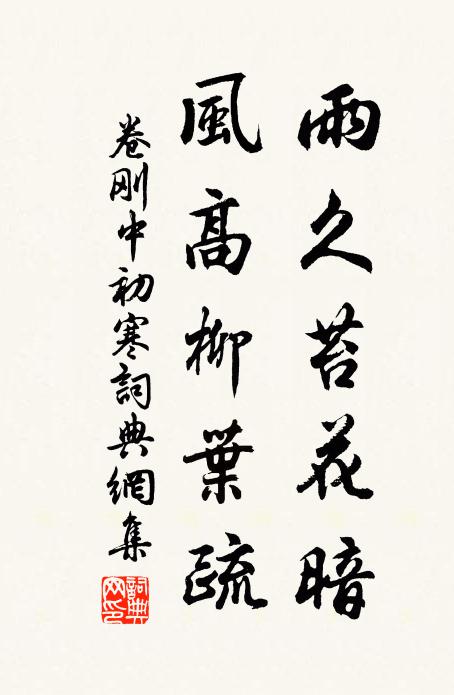 雨久苔花暗
風高柳葉疏
卷剛中初寒詞典網集
詞典網印